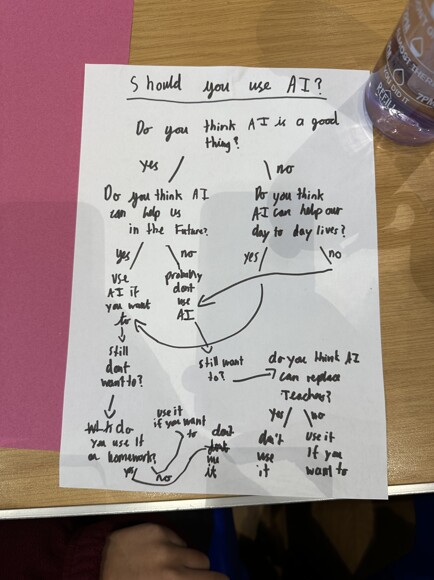 Should you use AI?
Do you think AI is a good
thing?
yes
no
Do you think AI
can help us
in the Future?
Do you think
AI can help our
day to day lives?
yes
no
yes
no
use
AI if
you want
to
probably
dont
use
AI
still
dont
want to?
still want
to?
do you think AI
can replace
Teacher?
yes
no
do you use It
on homework?
yes
no
use it
if you want
to
dont
use
it
don't
use
it
use it
If you
want to
REFILL
YOU DID IT